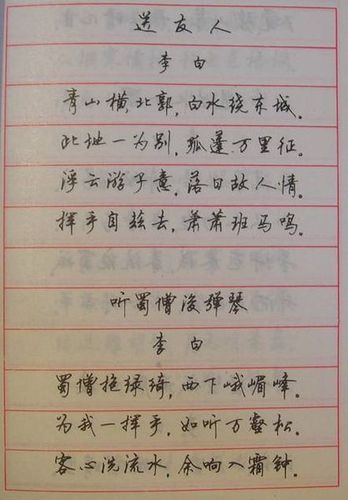 送友人
李白
青山横北郭,白水绕东城。
此地一为别,孤蓬万里征。
浮云游子意,落日故人情。
挥手自兹去,萧萧班马鸣。
听蜀僧浚弹琴
李白
蜀僧抱绿绮,西下峨嵋峰。
为我一挥手,如听万壑松。
客心洗流水,余响入霜钟。